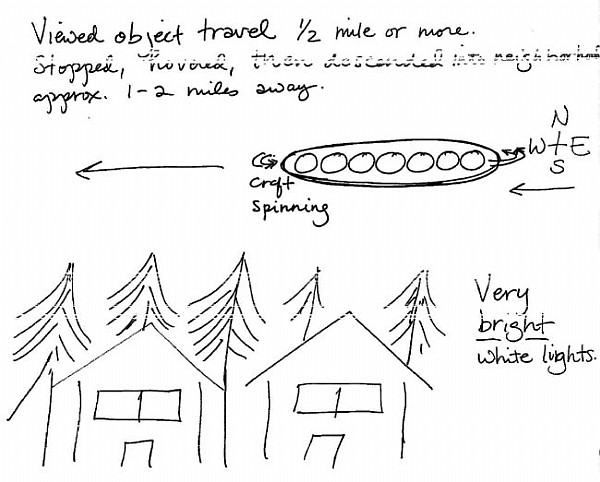 Viewed object travel 1/2 mile or more.
Stopped, hovered, then descended into neighborhood
approx. 1-2 miles away.
N
W E
S
craft
spinning
Very
bright
white lights.